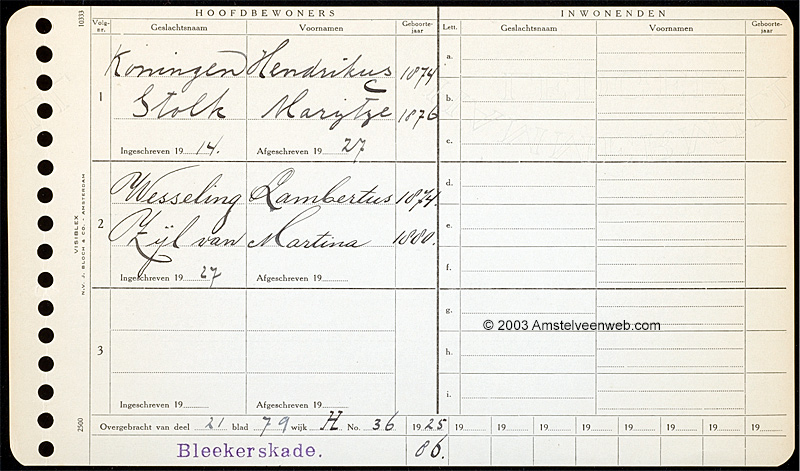 HOOFDBEWONERS
INWONENDEN
Volg-nr.
Geslachtsnaam Voornamen Geboorte-jaar
Lett. Geslachtsnaam Voornamen Geboorte-jaar
10333
1
Koningen Hendrikus 1874
Stolk Marijtje 1876
Ingeschreven 1914. Afgeschreven 1927
2
Wesseling Lambertus 1874.
Zijl van Martina 1880.
Ingeschreven 1927 Afgeschreven 19
3
Ingeschreven 19 Afgeschreven 19
a.
b.
c.
d.
e.
f.
g.
h.
i.
© 2003 Amstelveenweb.com
VISIBLEX
N.V. J. BLOCH & CO. - AMSTERDAM
2500
Overgebracht van deel 21 blad 79 wijk H No. 36 1925 19 19 19 19 19 19 19 19
Bleekerskade. 86.